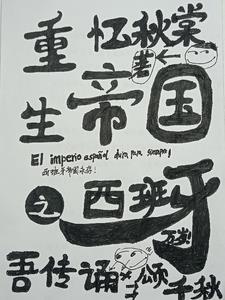 重 忆秋棠
生 帝国
著
El imperio español dura para siempre!
西班牙帝国永存!
之 西班牙
万岁!
吾传诵其颂千秋